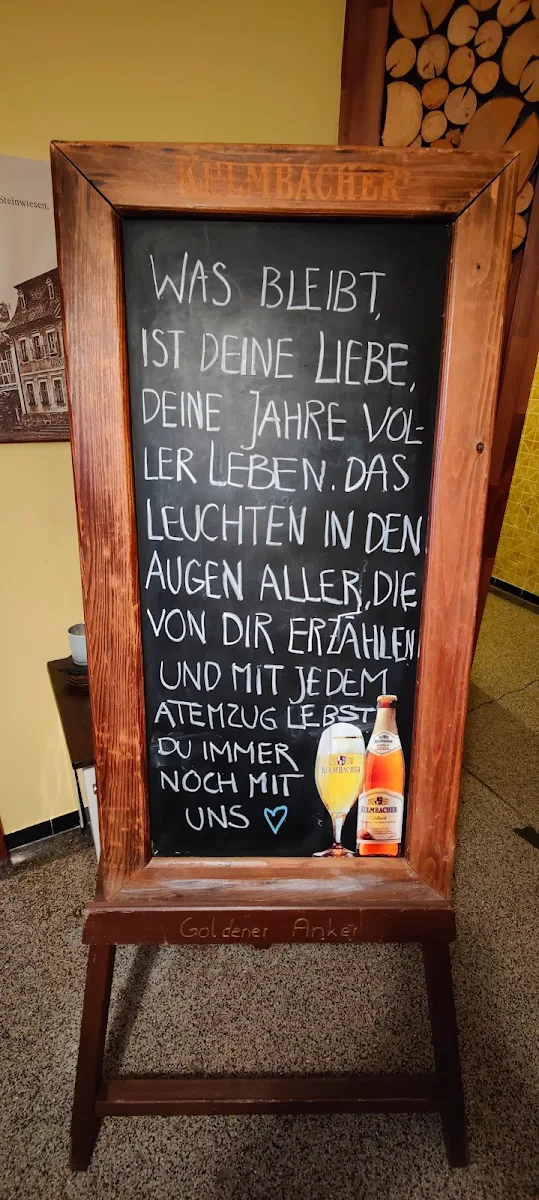 Steinwiesen.
KULMBACHER
WAS BLEIBT,
IST DEINE LIEBE,
DEINE JAHRE VOL-
LER LEBEN. DAS
LEUCHTEN IN DEN
AUGEN ALLER, DIE
VON DIR ERZÄHLEN
UND MIT JEDEM
ATEMZUG LEBST
DU IMMER
NOCH MIT
UNS
KULMBACHER
KULMBACHER
Goldener Anker